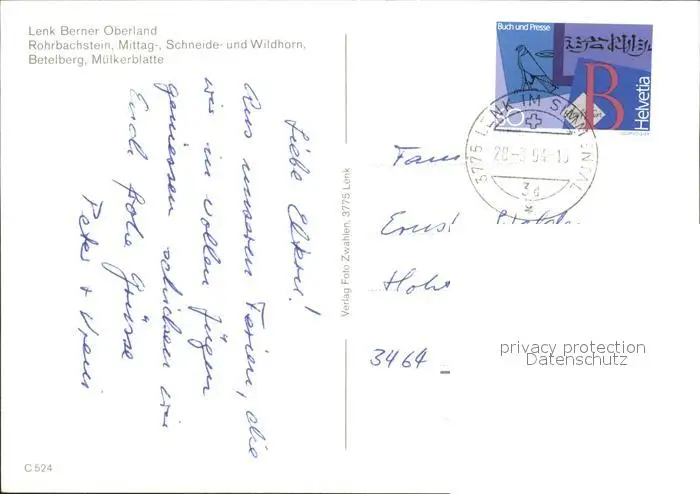 Lenk Berner Oberland
Rohrbachstein, Mittag-, Schneide- und Wildhorn,
Betelberg, Mülkerblatte
Liebe Eltern!
Aus unseren Ferien, die
wir in vollen Zügen
geniessen schicken wir
Euch frohe Grüsse
Peter + Vreni
C 524
Verlag Foto Zwahlen, 3775 Lenk
Buch und Presse
B
Helvetia
3775 LENK IM SIMMENTAL
Fam
Ernst
Hoh
3464
privacy protection
Datenschutz